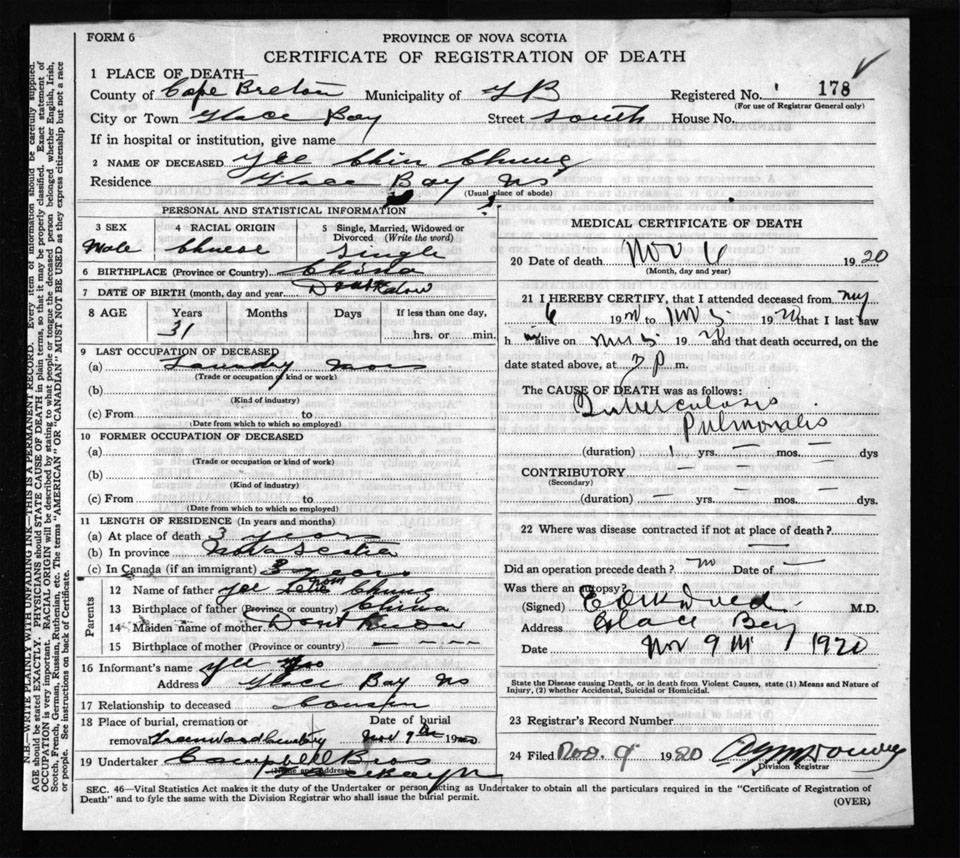 FORM 6
PROVINCE OF NOVA SCOTIA
CERTIFICATE OF REGISTRATION OF DEATH
1 PLACE OF DEATH—
County of Cape Breton Municipality of GB Registered No. 178
(For use of Registrar General only)
City or Town Glace Bay Street South House No.
If in hospital or institution, give name
2 NAME OF DECEASED Yee Chin Chung
Residence Glace Bay NS
(Usual place of abode)
PERSONAL AND STATISTICAL INFORMATION
3 SEX
Male
4 RACIAL ORIGIN
Chinese
5 Single, Married, Widowed or Divorced (Write the word)
Single
6 BIRTHPLACE (Province or Country) China
7 DATE OF BIRTH (month, day and year) Dont Know
8 AGE Years Months Days If less than one day,
31 hrs. or min.
9 LAST OCCUPATION OF DECEASED
(a)
(Trade or occupation of kind or work)
(b)
(Kind of industry)
(c) From to
(Date from which to which so employed)
10 FORMER OCCUPATION OF DECEASED
(a)
(Trade or occupation or kind of work)
(b)
(Kind of industry)
(c) From to
(Date from which to which so employed)
11 LENGTH OF RESIDENCE (In years and months)
(a) At place of death 3 years
(b) In province Nova Scotia
(c) In Canada (if an immigrant) 3 years
Parents
12 Name of father Yee Chung
13 Birthplace of father (Province or country) China
14 Maiden name of mother Dont Know
15 Birthplace of mother (Province or country) — — — —
16 Informant's name Yee
Address Glace Bay NS
17 Relationship to deceased Cousin
18 Place of burial, cremation or removal Greenwood Cemetery
Date of burial Nov 9th 1920
19 Undertaker Campbell Bros
(Name and address)
MEDICAL CERTIFICATE OF DEATH
20 Date of death Nov 6 1920
(Month, day and year)
21 I HEREBY CERTIFY, that I attended deceased from
6 1920 to Nov 5 1920 that I last saw
h im alive on Nov 5 1920 and that death occurred, on the
date stated above, at 7 P m.
The CAUSE OF DEATH was as follows:
Tuberculosis
Pulmonalis
(duration) 1 yrs. — mos. — dys
CONTRIBUTORY — — —
(Secondary)
(duration) — yrs. — mos. — dys.
22 Where was disease contracted if not at place of death?
—
Did an operation precede death? no Date of —
Was there an autopsy?
(Signed) M.D.
Address Glace Bay
Date Nov 9th 1920
State the Disease causing Death, or in death from Violent Causes, state (1) Means and Nature of Injury, (2) whether Accidental, Suicidal or Homicidal.
23 Registrar's Record Number
24 Filed Nov. 9 1920
Division Registrar
SEC. 46—Vital Statistics Act makes it the duty of the Undertaker or person acting as Undertaker to obtain all the particulars required in the "Certificate of Registration of
Death" and to fyle the same with the Division Registrar who shall issue the burial permit.
(OVER)
N.B.—WRITE PLAINLY WITH UNFADING INK—THIS IS A PERMANENT RECORD. Every item of information should be carefully supplied.
AGE should be stated EXACTLY. PHYSICIANS should STATE CAUSE OF DEATH in plain terms, so that it may be properly classified. Exact statement of
OCCUPATION is very important. RACIAL ORIGIN will be described by stating to what people or tongue the deceased person belonged whether English, Irish,
Scotch, French, German, Russian, Ruthenian, etc. The terms "AMERICAN" OR "CANADIAN" MUST NOT BE USED as they express citizenship but not a race
or people. See instructions on back of Certificate.